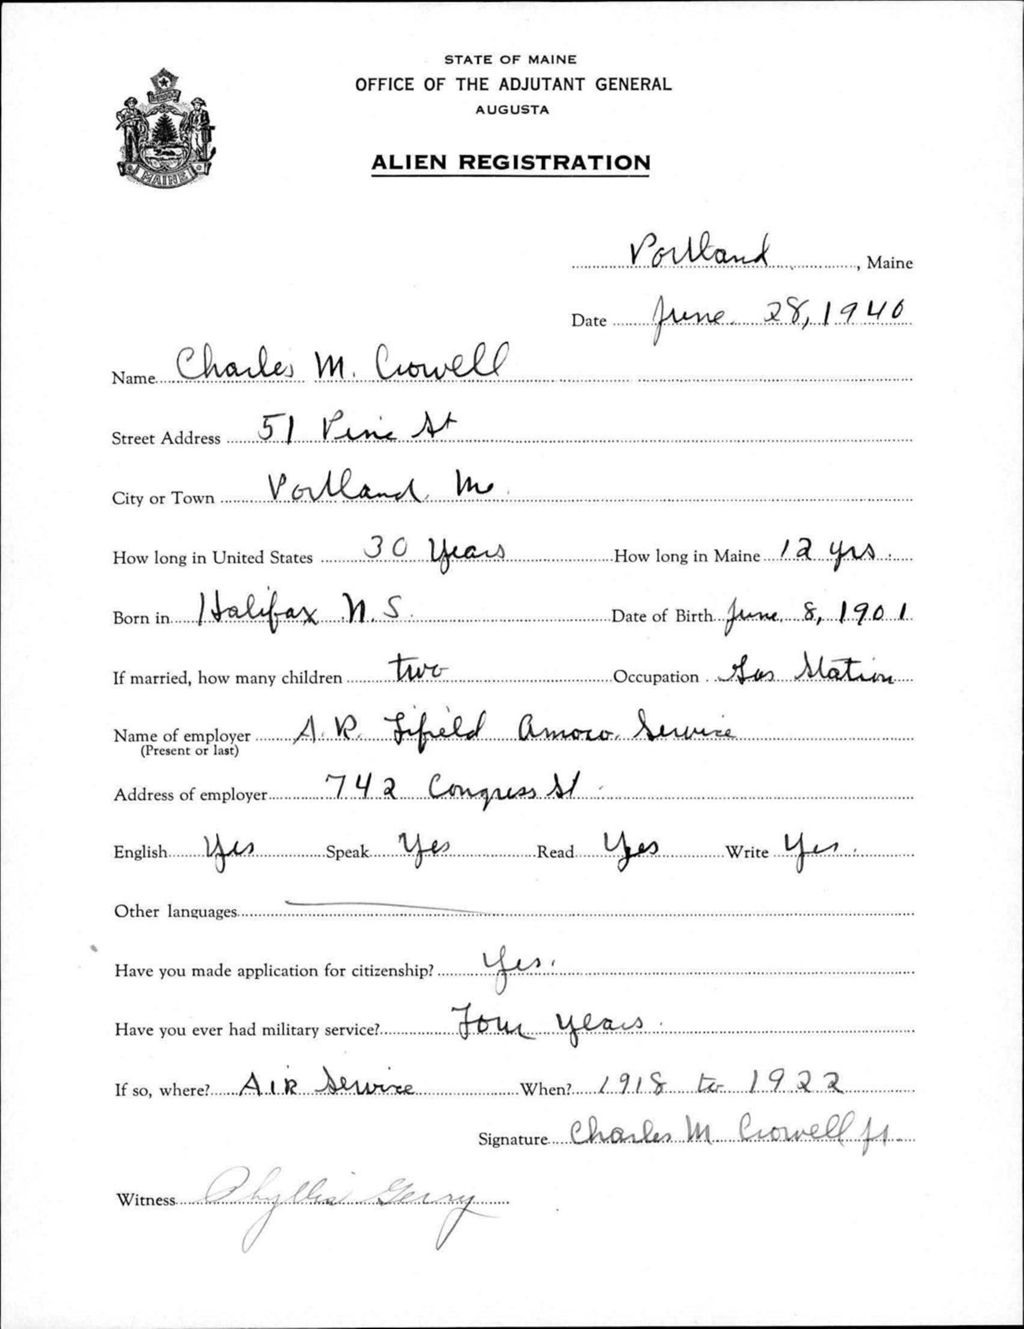 STATE OF MAINE
OFFICE OF THE ADJUTANT GENERAL
AUGUSTA
ALIEN REGISTRATION
MAINE
Portland, Maine
Date June 28, 1940
Name Charles M. Crowell
Street Address 51 Pine St
City or Town Portland Me.
How long in United States 30 Years How long in Maine 12 yrs.
Born in Halifax N.S. Date of Birth June 8, 1901
If married, how many children two Occupation Gas Station
Name of employer A.R. Fifield Amoco Service
(Present or last)
Address of employer 742 Congress St
English Yes Speak Yes Read Yes Write Yes.
Other languages
Have you made application for citizenship? Yes.
Have you ever had military service? Four years.
If so, where? Air Service When? 1918 to 1922
Signature Charles M Crowell Jr.
Witness Phyllis Gerry